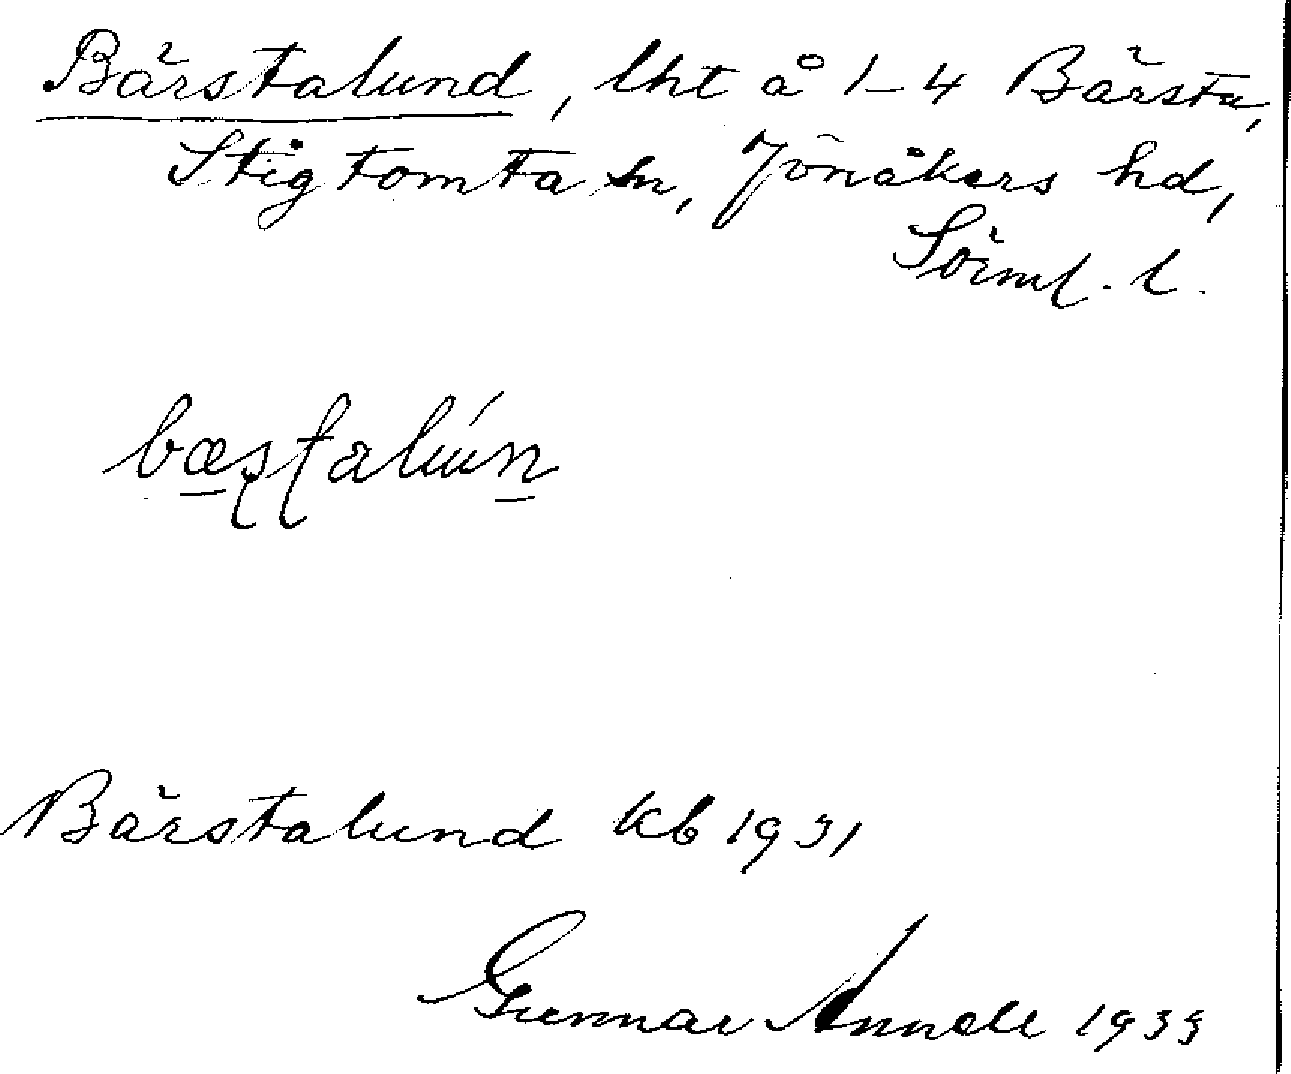 Bärstalund, lht å 1-4 Bärsta,
Stigtomta sn, Jönåkers hd,
Söml. l.
bæʂʈalún
Bärstalund kb 1931
Gunnar Annell 1933